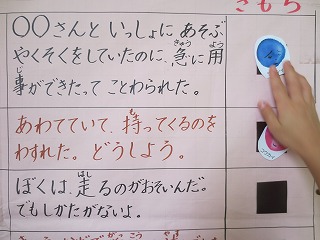 きもち
〇〇さんと いっしょに あそぶ
やくそくをしていたのに、急に用
事ができたって ことわられた。
あわてていて、持ってくるのを
わすれた。どうしよう。
ぼくは、走るのがおそいんだ。
でもしかたがないよ。